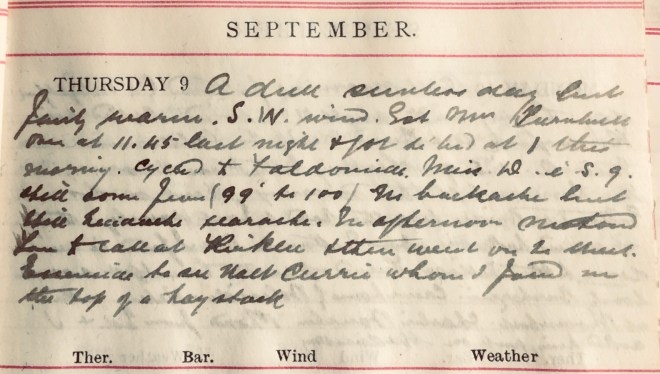 SEPTEMBER.
THURSDAY 9 A dull sunless day but
fairly warm. S.W. wind. Got Mrs Turnbull
over at 11.45 last night & got to bed at 1 this
morning. Cycled to Faldonside. Miss D. is s. g.
still some fever (99° to 100) No backache but
still headache & earache. In afternoon
to call at & then went on to
to see Walt Currie whom I found on
the top of a haystack
Ther. Bar. Wind Weather